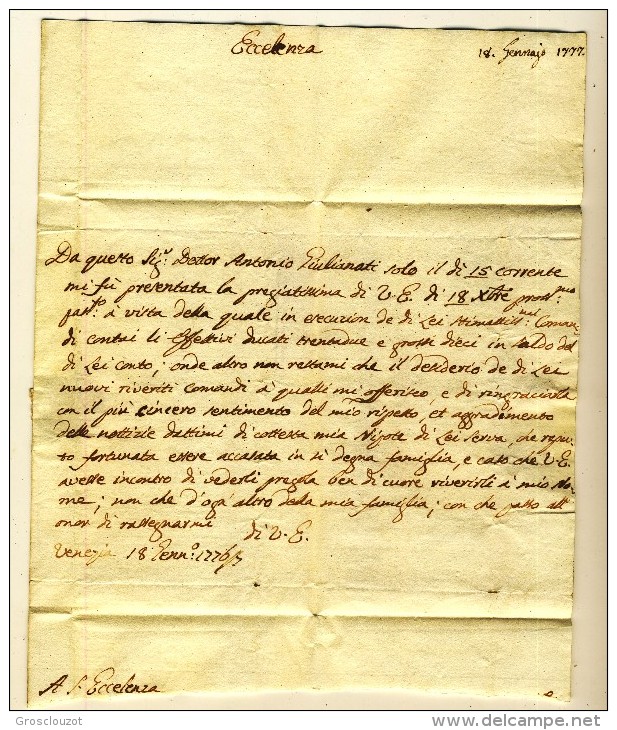 Eccelenza
18. Gennajo 1777.
Da questo Sig.r Dottor Antonio Giulianati solo il dì 15 corrente
mi fù presentata la pregiatissima di V.E. di 18 Xbre pross.mo
pass.to à vista della quale in esecuzion de di Lei stimatiss.mi Coman
di contai li effettivi ducati trentadue e grossi dieci in saldo del
di Lei conto; onde altro non restami che il desiderio de di Lei
nuovi riveriti comandi à qualli mi offerisco, e di ringraciarla
con il più sincero sentimento del mio rispetto, et aggradimento
delle nottizie dattimi di cottesta mia Nipote di Lei serva, che repu
to fortunata essere accasata in sì degna famiglia, e caso che V.E.
avesse incontro di vederli pregola ben di cuore riverirli à mio No
me; non che d'ogn' altro della mia famiglia; con che passo all'
onor di rassegnarmi
di V.E.
Venezia 18 Genn.o 1776/7
A S. Eccelenza
Grosclouzot
www.delcampe.net